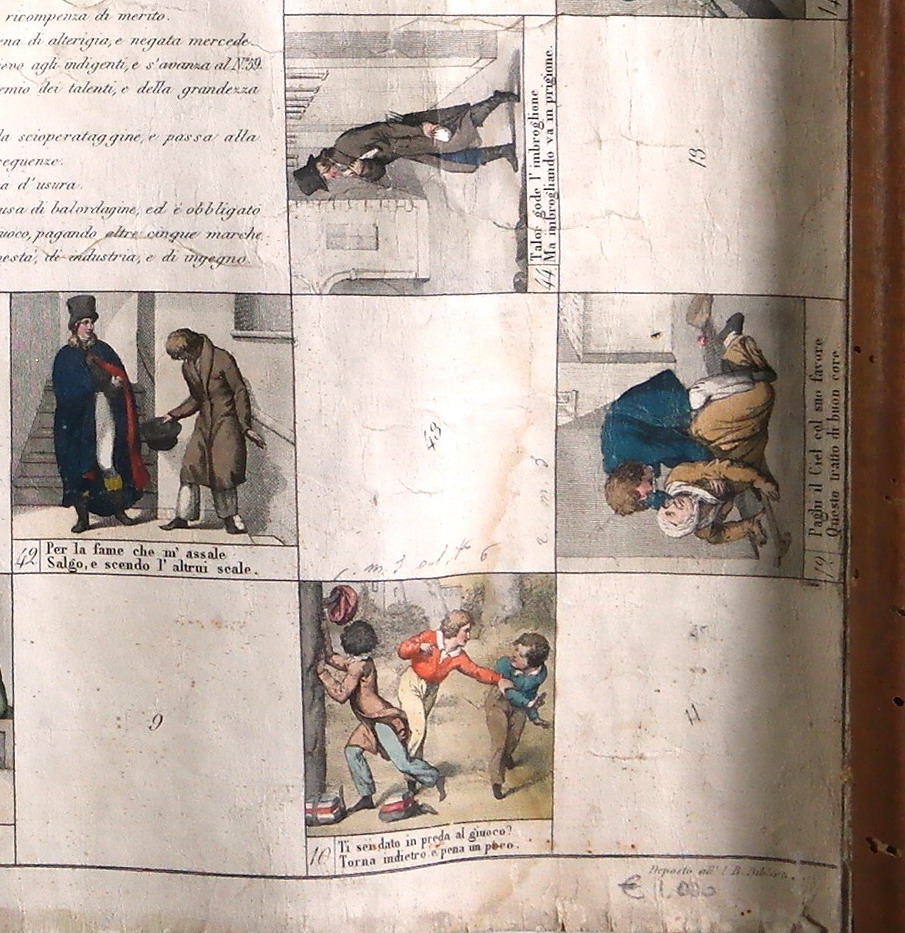 ricompenza di merito.
ena di alterigia, e negata mercede
evo agli indigenti, e s'avanza al N.º 59.
emio dei talenti, e della grandezza
la scioperataggine, e passa alla
eguenze.
a d'usura.
usa di balordagine, ed è obbligato
uoco, pagando altre cinque marche
pestà, di industria, e di ingegno.
14
44
Talor gode l'imbroglione
Ma imbrogliando va in prigione.
13
42
Per la fame che m' assale
Salgo, e scendo l' altrui scale.
43
12
Paghi il Ciel col suo favore
Questo tratto di buon core.
9
10
Ti sei dato in preda al giuoco?
Torna indietro e pena un poco.
11
Deposto all' I. R. Bibliot.
€ 1.000